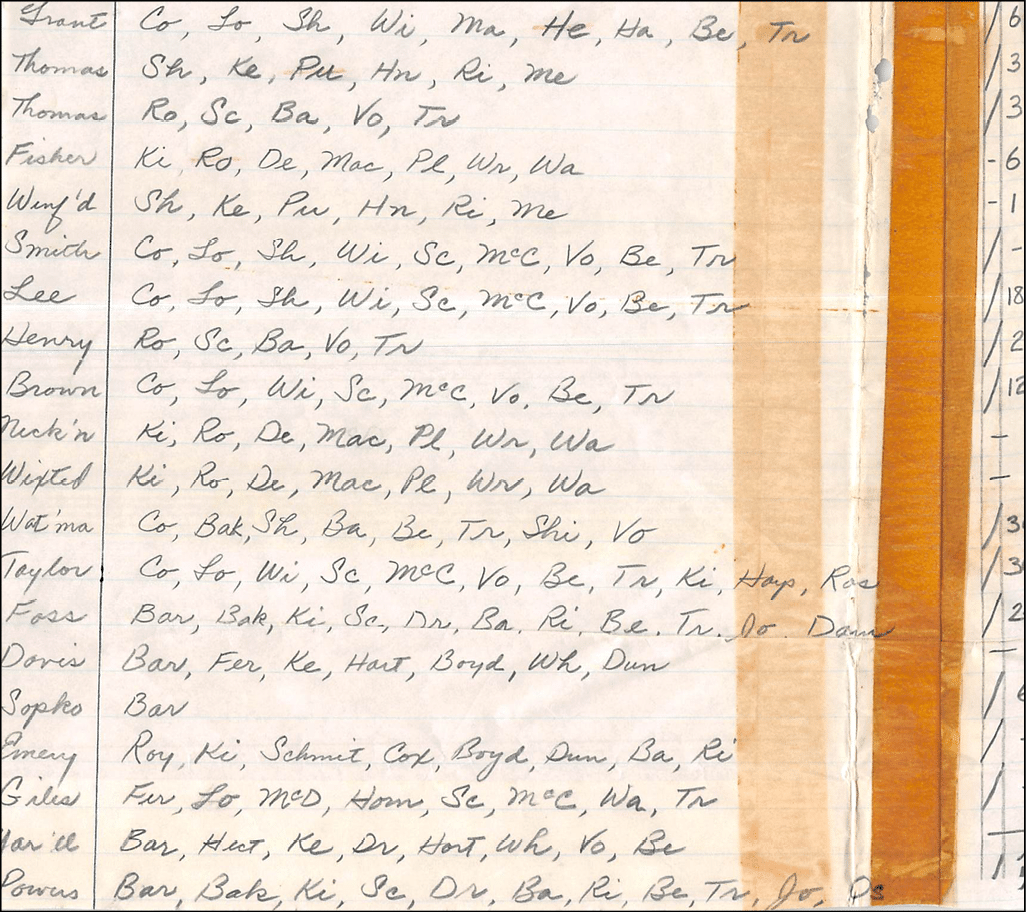 Grant Co, Lo, Sh, Wi, Ma, He, Ha, Be, Tr 6
Thomas Sh, Ke, Pu, Hn, Ri, Me / 3
Thomas Ro, Sc, Ba, Vo, Tr / 3
Fisher Ki, Ro, De, Mac, Pl, Wr, Wa - 6
Winf'd Sh, Ke, Pu, Hn, Ri, Me - 1
Smith Co, Lo, Sh, Wi, Sc, McC, Vo, Be, Tr / -
Lee Co, Lo, Sh, Wi, Sc, McC, Vo, Be, Tr / 18
Henry Ro, Sc, Ba, Vo, Tr / 2
Brown Co, Lo, Wi, Sc, McC, Vo, Be, Tr / 12
Meck'n Ki, Ro, De, Mac, Pl, Wr, Wa -
Wixted Ki, Ro, De, Mac, Pl, Wr, Wa -
Wat'ma Co, Bak, Sh, Ba, Be, Tr, Shi, Vo / 3
Taylor Co, Lo, Wi, Sc, McC, Vo, Be, Tr, Ki, Hayp, Ros / 3
Foss Bar, Bak, Ki, Sc, Dr, Ba, Ri, Be, Tr, Jo, Dam / 2
Davis Bar, Fer, Ke, Hart, Boyd, Wh, Dun -
Sopko Bar /
Emery Roy, Ki, Schmit, Cox, Boyd, Dun, Ba, Ri /
Giles Fer, Lo, McD, Hom, Sc, McC, Wa, Tr /
Bar, Hect, Ke, Dr, Hart, Wh, Vo, Be -
Powers Bar, Bak, Ki, Sc, Dr, Ba, Ri, Be, Tr, Jo, Os /